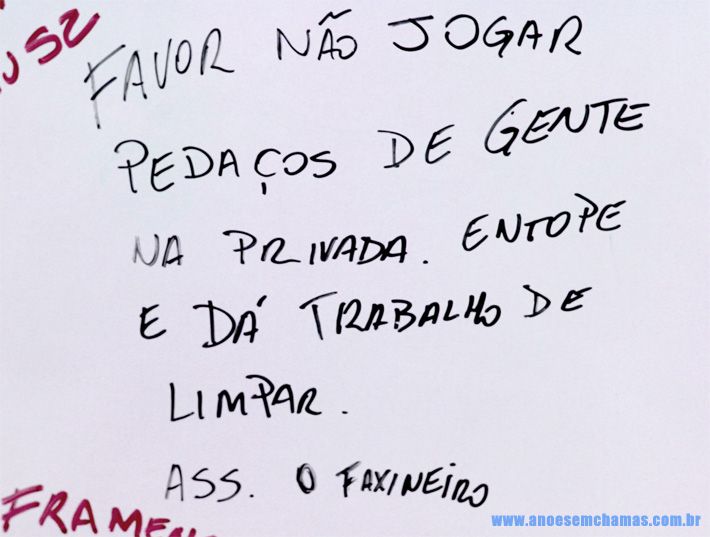 FAVOR NÃO JOGAR
PEDAÇOS DE GENTE
NA PRIVADA. ENTOPE
E DÁ TRABALHO DE
LIMPAR.
ASS. O FAXINEIRO
www.anoesemchamas.com.br